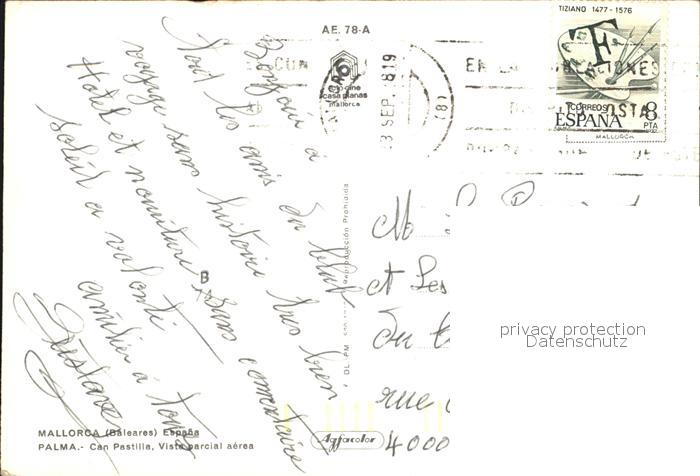 TIZIANO 1477 - 1576
AE. 78-A
foto-cine
casa planas
mallorca
SEP.
(8)
CORREOS
ESPAÑA 8
PTA
MALLORCA
Bonjour à
tout les amis du Club
voyage sans histoire très bien
Hotel et nourriture sans commentaire
soleil a volonté
amitiés à tous
Gustave
B
Reproducción Prohibida
M
et Les
du
rue
4000
privacy protection
Datenschutz
MALLORCA (Baleares) España
PALMA.- Can Pastilla, Vista parcial aérea
Agfacolor